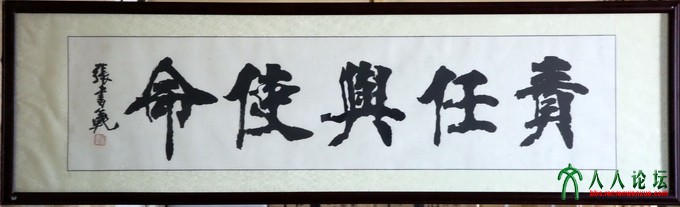 責任與使命
張書
人人论坛